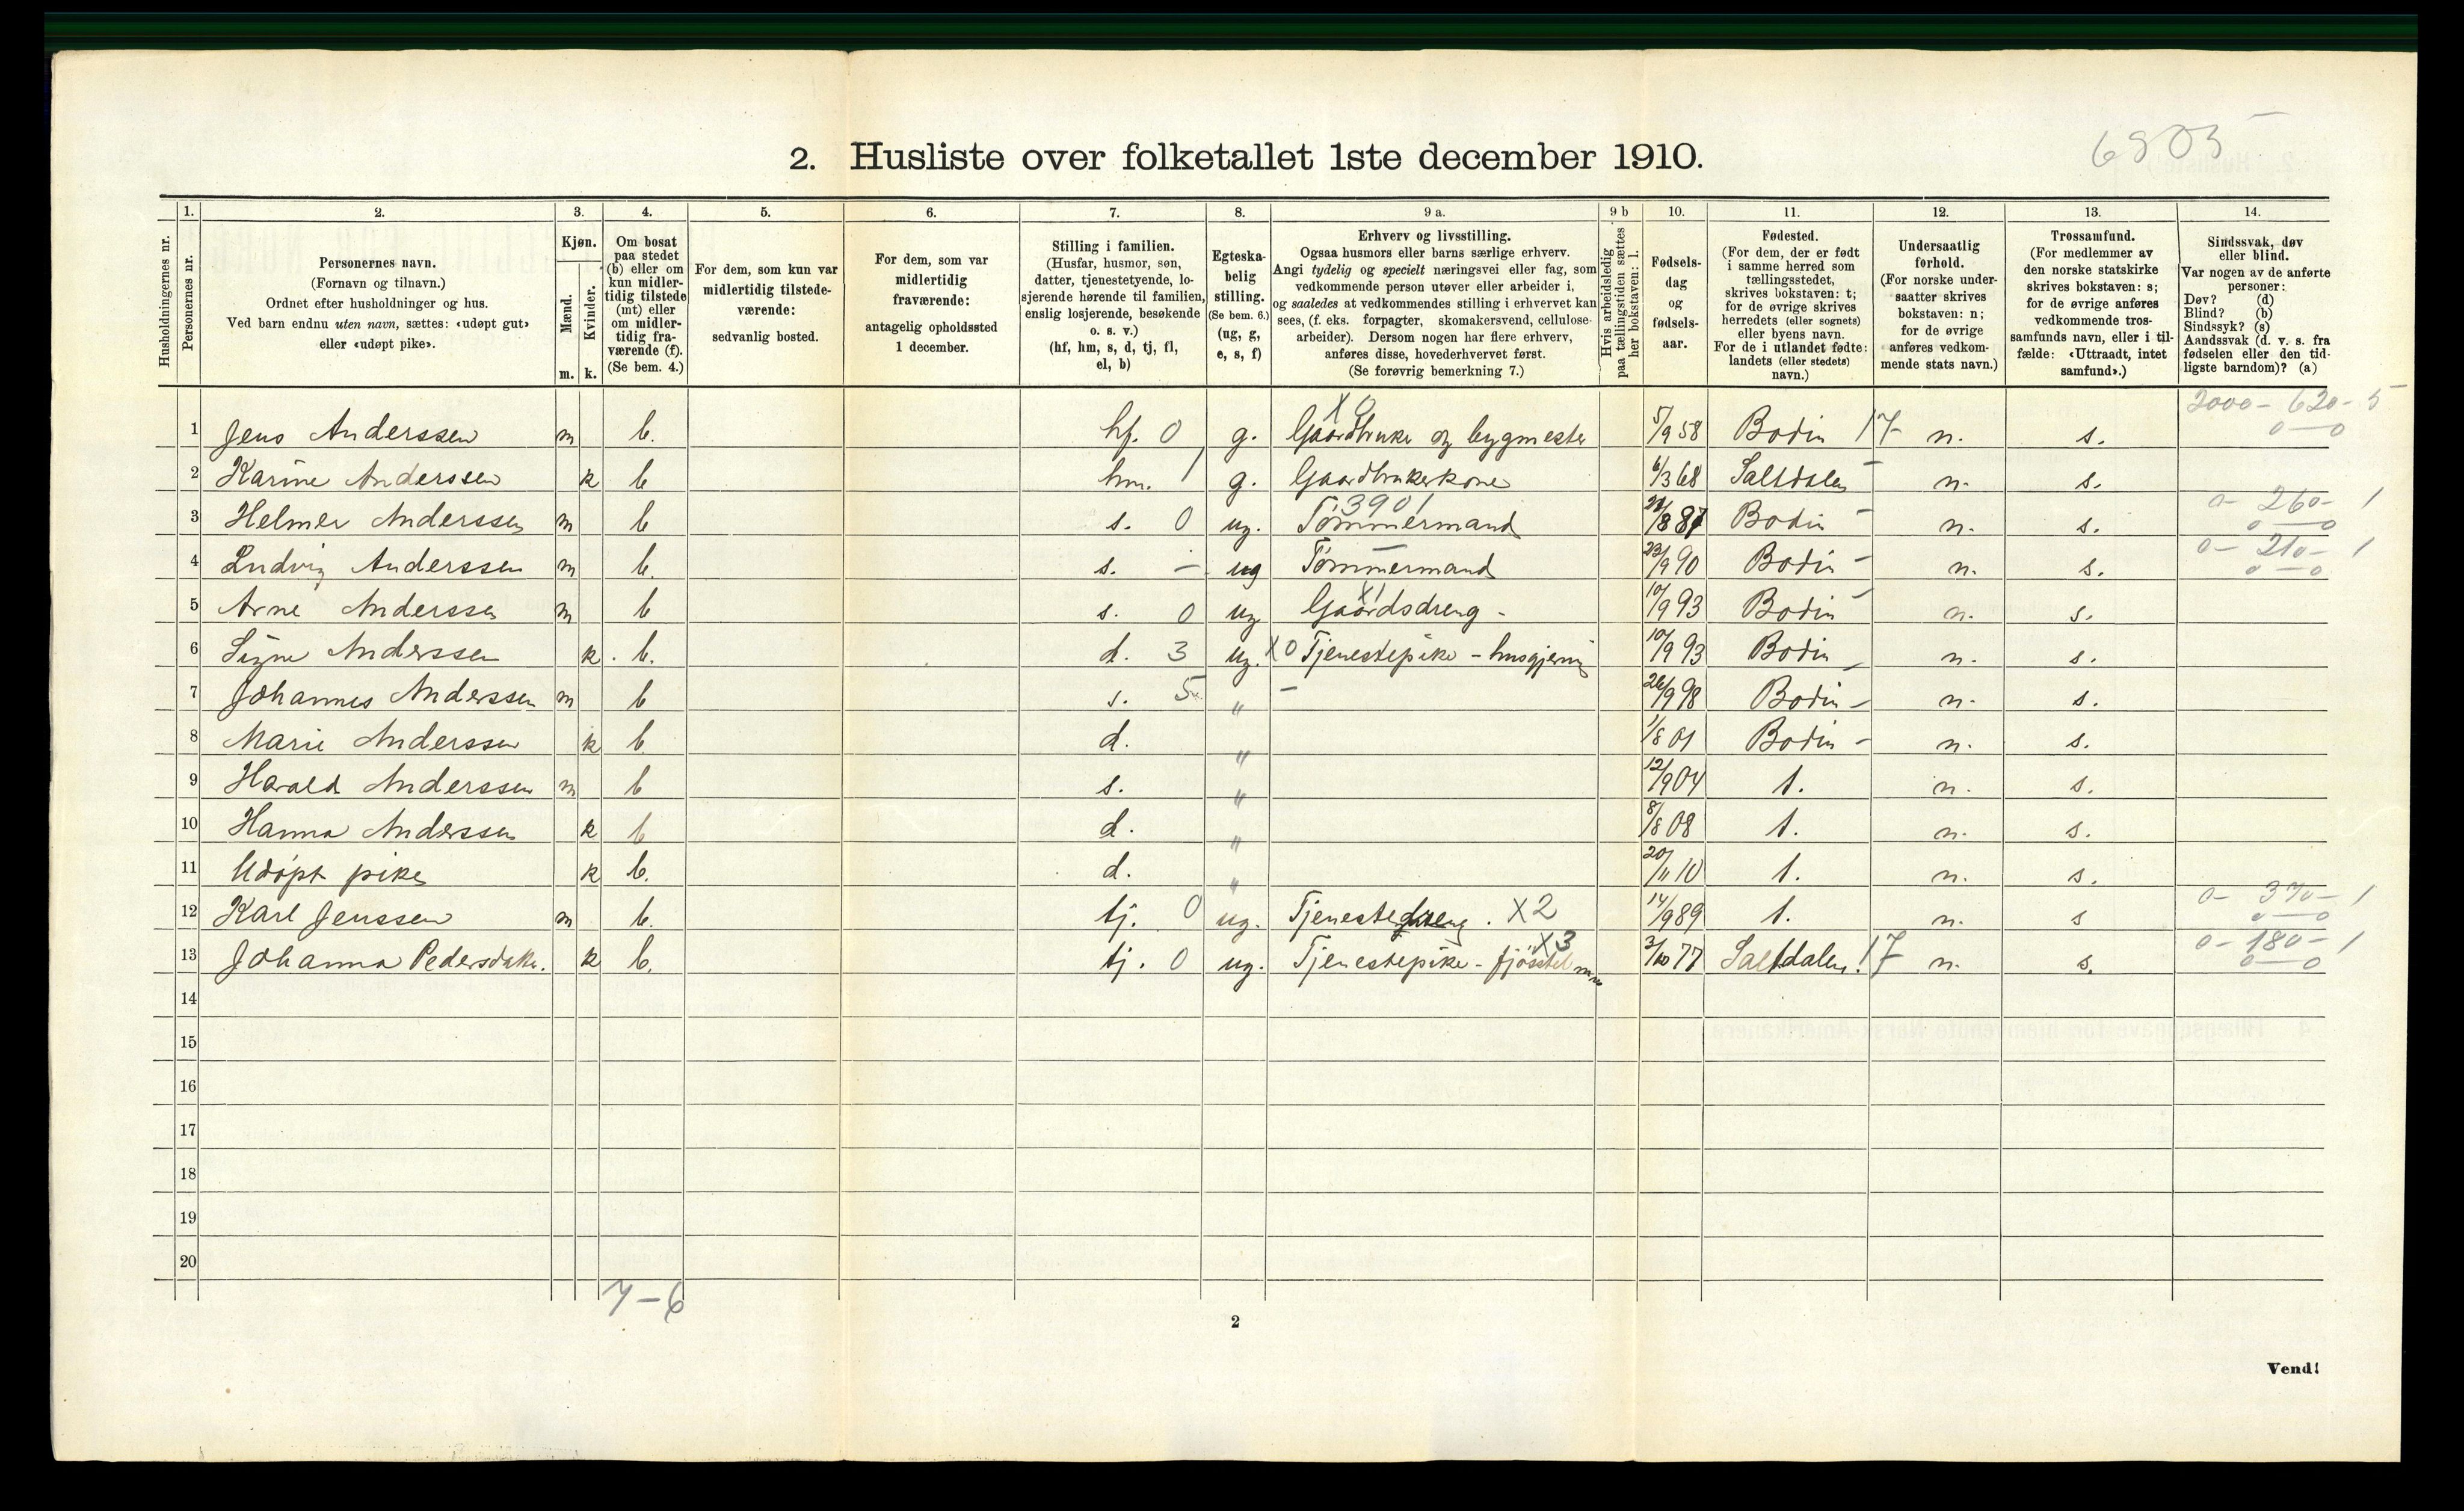 6805
2. Husliste over folketallet 1ste december 1910.
Husholdningernes nr.
1. Personernes nr.
2. Personernes navn. (Fornavn og tilnavn.) Ordnet efter husholdninger og hus. Ved barn endnu uten navn, sættes: «udøpt gut» eller «udøpt pike».
3. Kjøn. Mænd. m. Kvinder. k.
4. Om bosat paa stedet (b) eller om kun midlertidig tilstede (mt) eller om midlertidig fraværende (f). (Se bem. 4.)
5. For dem, som kun var midlertidig tilstedeværende: sedvanlig bosted.
6. For dem, som var midlertidig fraværende: antagelig opholdssted 1 december.
7. Stilling i familien. (Husfar, husmor, søn, datter, tjenestetyende, losjerende hørende til familien, enslig losjerende, besøkende o. s. v.) (hf, hm, s, d, tj, fl, el, b)
8. Egteskabelig stilling. (Se bem. 6.) (ug, g, e, s, f)
9 a. Erhverv og livsstilling. Ogsaa husmors eller barns særlige erhverv. Angi tydelig og specielt næringsvei eller fag, som vedkommende person utøver eller arbeider i, og saaledes at vedkommendes stilling i erhvervet kan sees, (f. eks. forpagter, skomakersvend, cellulosearbeider). Dersom nogen har flere erhverv, anføres disse, hovederhvervet først. (Se forøvrig bemerkning 7.)
9 b Hvis arbeidsledig paa tællingstiden sættes her bokstaven: l.
10. Fødselsdag og fødselsaar.
11. Fødested. (For dem, der er født i samme herred som tællingsstedet, skrives bokstaven: t; for de øvrige skrives herredets (eller sognets) eller byens navn. For de i utlandet fødte: landets (eller stedets) navn.)
12. Undersaatlig forhold. (For norske undersaatter skrives bokstaven: n; for de øvrige anføres vedkommende stats navn.)
13. Trossamfund. (For medlemmer av den norske statskirke skrives bokstaven: s; for de øvrige anføres vedkommende trossamfunds navn, eller i tilfælde: «Uttraadt, intet samfund».)
14. Sindssvak, døv eller blind. Var nogen av de anførte personer: Døv? (d) Blind? (b) Sindssyk? (s) Aandssvak (d. v. s. fra fødselen eller den tidligste barndom)? (a)
X0 2000 - 620 - 5
1 Jens Anderssen m b. hf. 0 g. Gaardbruker og bygmester 5/9 58 Bodin 17 n. s. 0 — 0
2 Karine Anderssen k b hm. 1 g. Gaardbrukerkone 6/3 68 Saltdalen - n. s.
3901 0 - 260 - 1
3 Helmer Anderssen m b s. 0 ug. Tømmermand 87 Bodin - n. s. 0 — 0
0 - 210 - 1
4 Ludvig Anderssen m b. s. - ug Tømmermand 23/9 90 Bodin - n. s. 0 — 0
X1
5 Arne Anderssen m b s. 0 ug Gaardsdreng - 10/9 93 Bodin - n. s.
6 Signe Anderssen k b. d. 3 ug. X0 Tjenestepike - husgjerning 10/9 93 Bodin - n. s.
7 Johannes Anderssen m b s. 5 " - 26/9 98 Bodin - n. s.
8 Marie Anderssen k b d. " 1/8 01 Bodin - n. s.
9 Harald Anderssen m b s. " 12/9 04 t. n. s.
10 Hanna Anderssen k b d. " 8/8 08 t. n. s.
11 Udøpt pike k b. d. " 20/11 10 t. n. s.
0 - 370 - 1
12 Karl Jenssen m b. tj. 0 ug. Tjenestedreng. X2 14/9 89 t. n. s 0 — 0
X3 0 - 180 - 1
13 Johanna Pedersdatter. k b. tj. 0 ug. Tjenestepike - fjøsstel 3/10 77 Saltdalen. 17 n. s. 0 — 0
14
15
16
17
18
19
20
7 - 6
2
Vend!